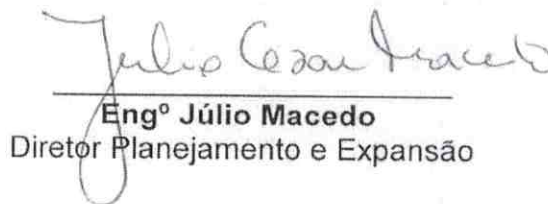 Julio Cezar Macedo
Engº Júlio Macedo
Diretor Planejamento e Expansão